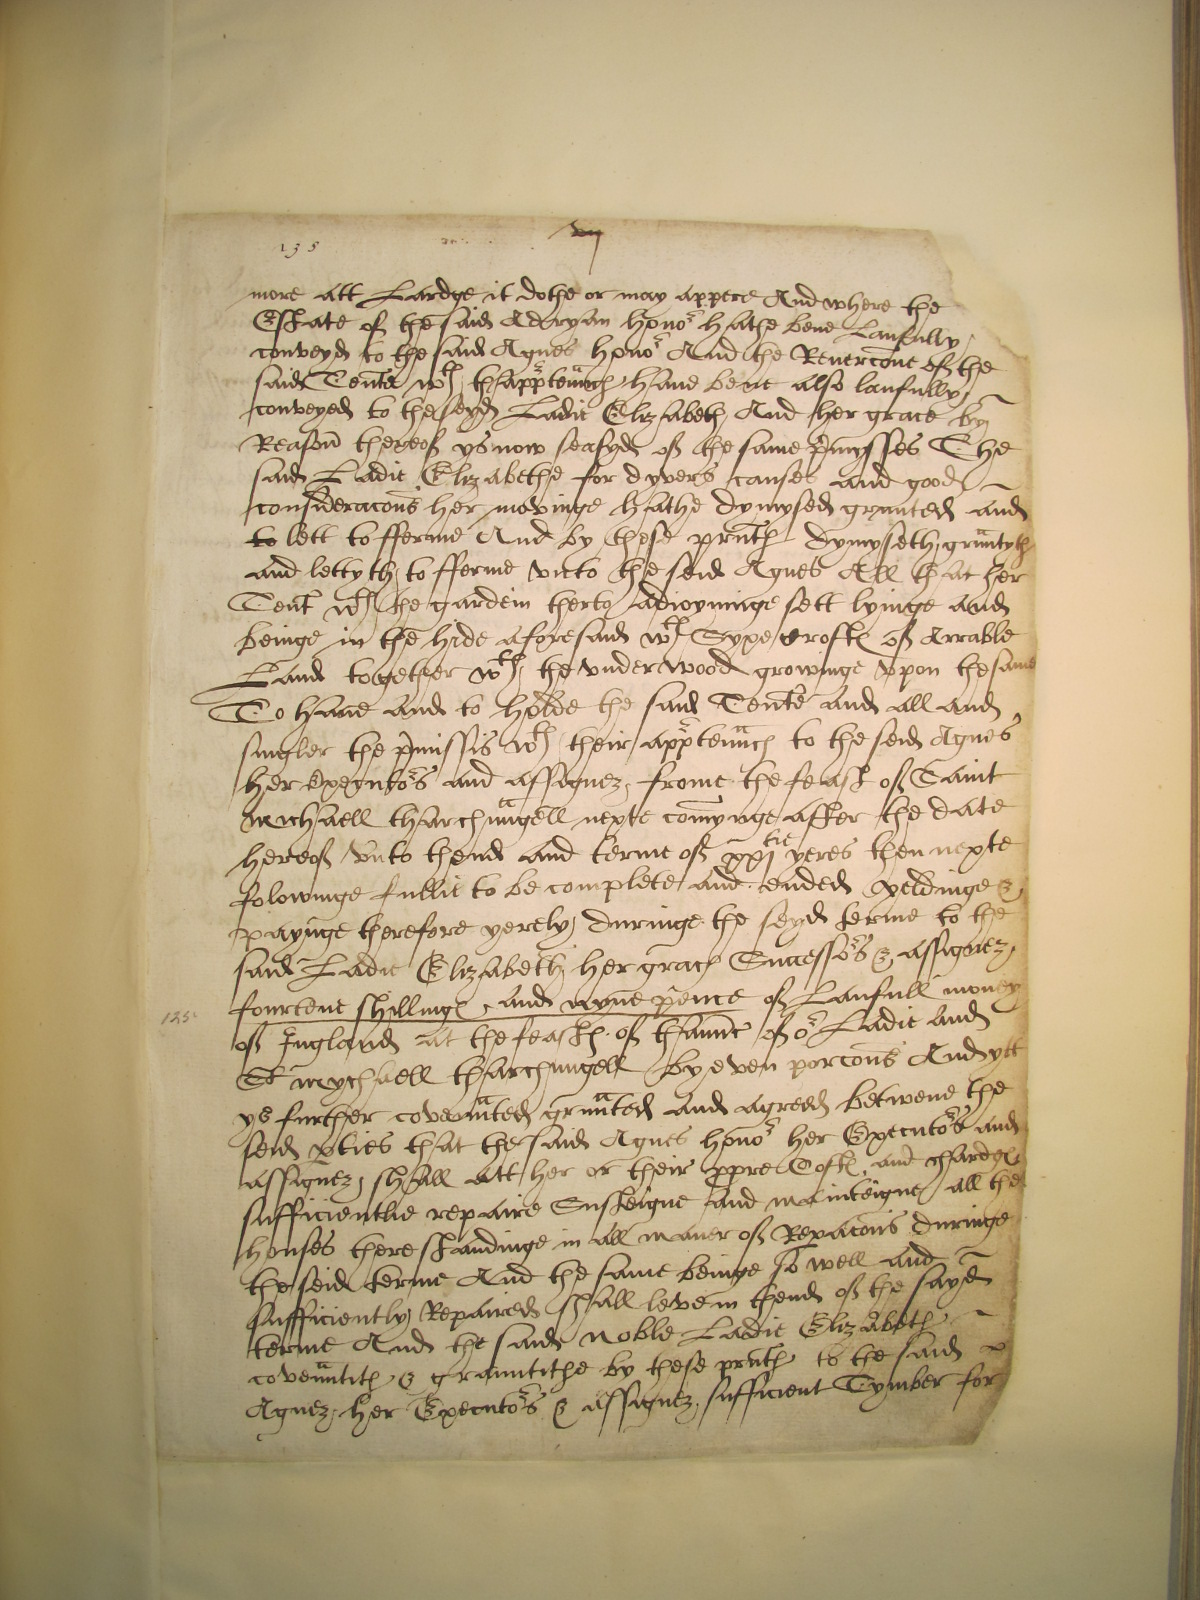 135
vij
more att Lardge it dothe or may appere And where the
Estate of the said Adryan honor hathe bene Laufully
conveyd to the said Agnes honor And the Revercone of the
said Tente wth thapptennc have bene also laufully
conveyed to the seyd Ladie Elizabeth And her grace by
Reason therof ys now seasyd of the same pmysses The
said Ladie Elizabethe for dyvers causes and good
consideracons her movinge hathe dymysed graunted and
to lett to fferme And by these prnts dymyseth grauntyth
and lettyth to fferme unto the seid Agnes All that her
Tent wth the gardein therto adioyninge sett lyinge and
beinge in the hide aforesaid wth Syxe croftes of Arrable
Land together wth the underwood growinge upon the same
To have and to holde the said Tente and all and
singler the pmissis wth their apptennc to the seid Agnes
her executors and assignez frome the feast of Saint
michaell tharchaungell nexte comynge affter the date
hereof unto thend and terme of xxjtie yeres then nexte
folowinge fullie to be complete and ended yeldinge &
payinge therefore yerely duringe the seyd terme to the
said Ladie Elizabeth her graces Successors & assignez
fourtene shillinges and nyne pence of Laufull money
125
of Ingland at the feastes of thannc of or Ladie and
St mychaell tharchaungell by even porcons And ytt
ys further covenauted graunted and agreed betwene the
seid pties that the said Agnes honor her Executors and
assignez shall att her or their ppre Costes and chardges
sufficientlie repaire Susteigne and mainteigne all the
houses there standinge in all maner of Repacons duringe
the seid terme And the same beinge so well and
sufficiently Repaired shall leve in thend of the sayd
terme And the said noble Ladie Elizabeth
covenauntith & grauntithe by these prnts to the said
Agnez her Executors & assignez sufficient Tymber for